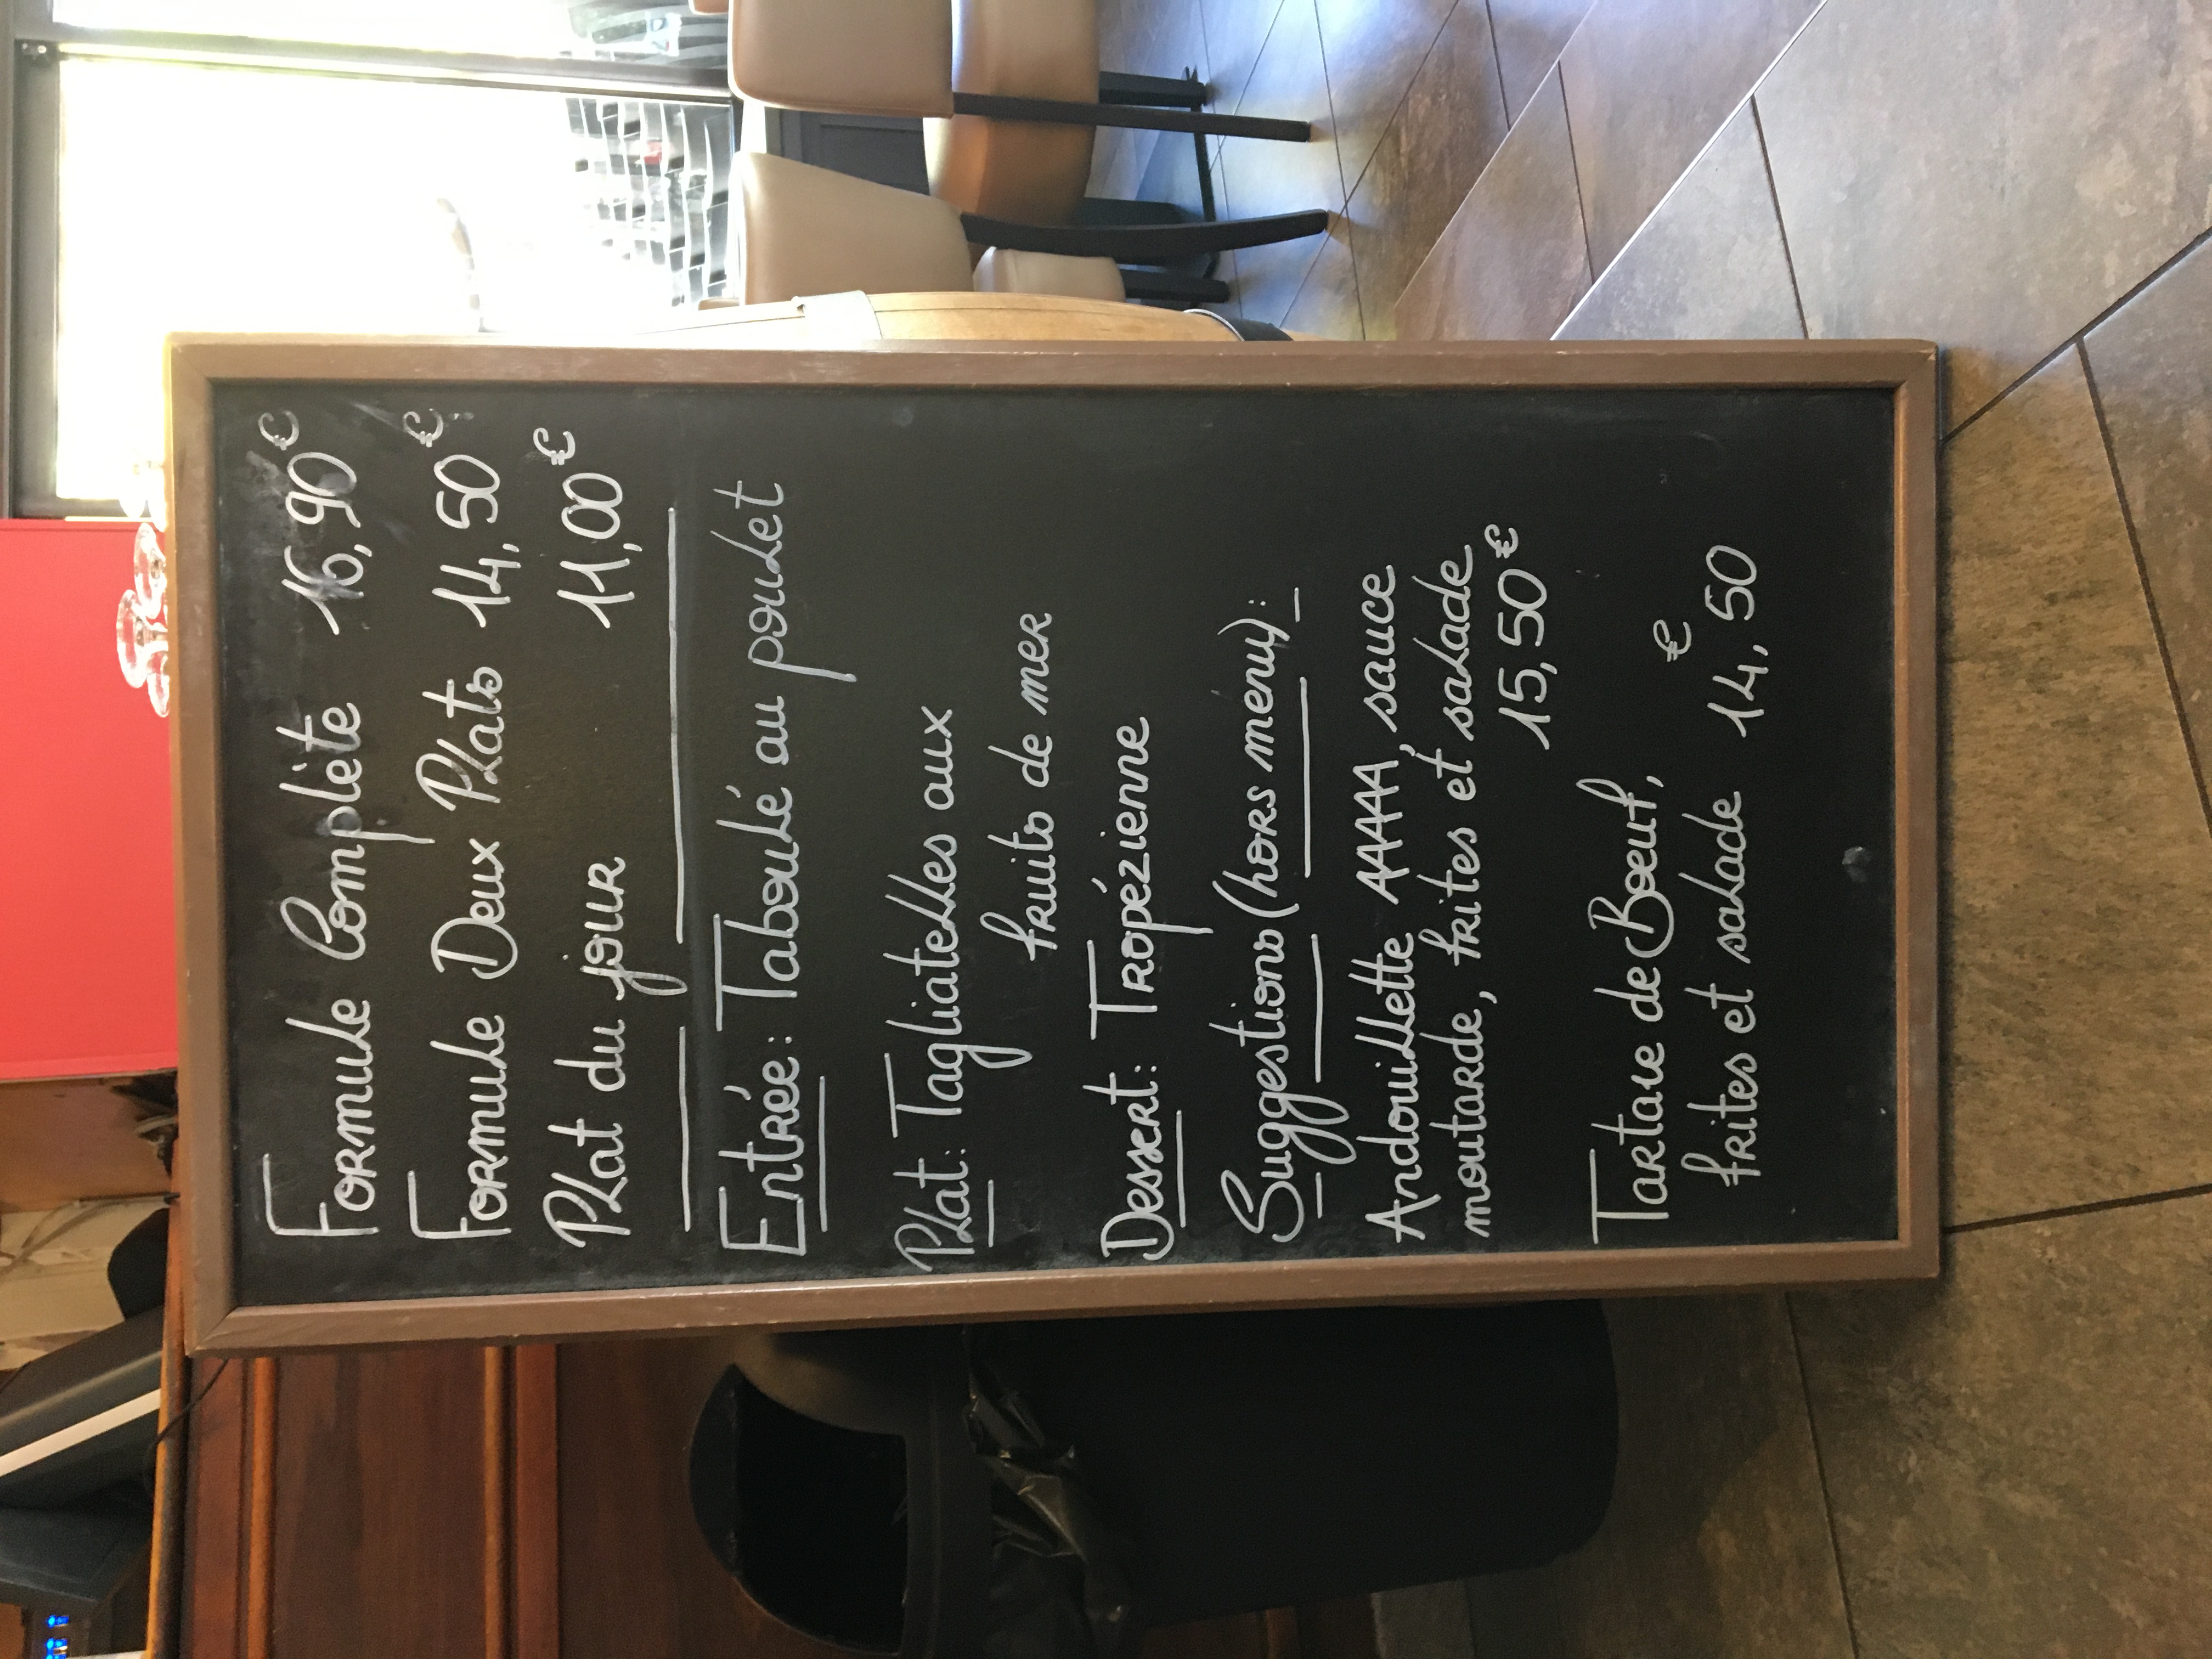 Formule Complète 16,90€
Formule Deux Plats 14,50€
Plat du jour 11,00€
Entrée: Taboulé au poulet
Plat: Tagliatelles aux
fruits de mer
Dessert: Tropézienne
Suggestions (hors menu):
Andouillette AAAAA, sauce
moutarde, frites et salade
15,50€
Tartare de Boeuf,
frites et salade 14,50€